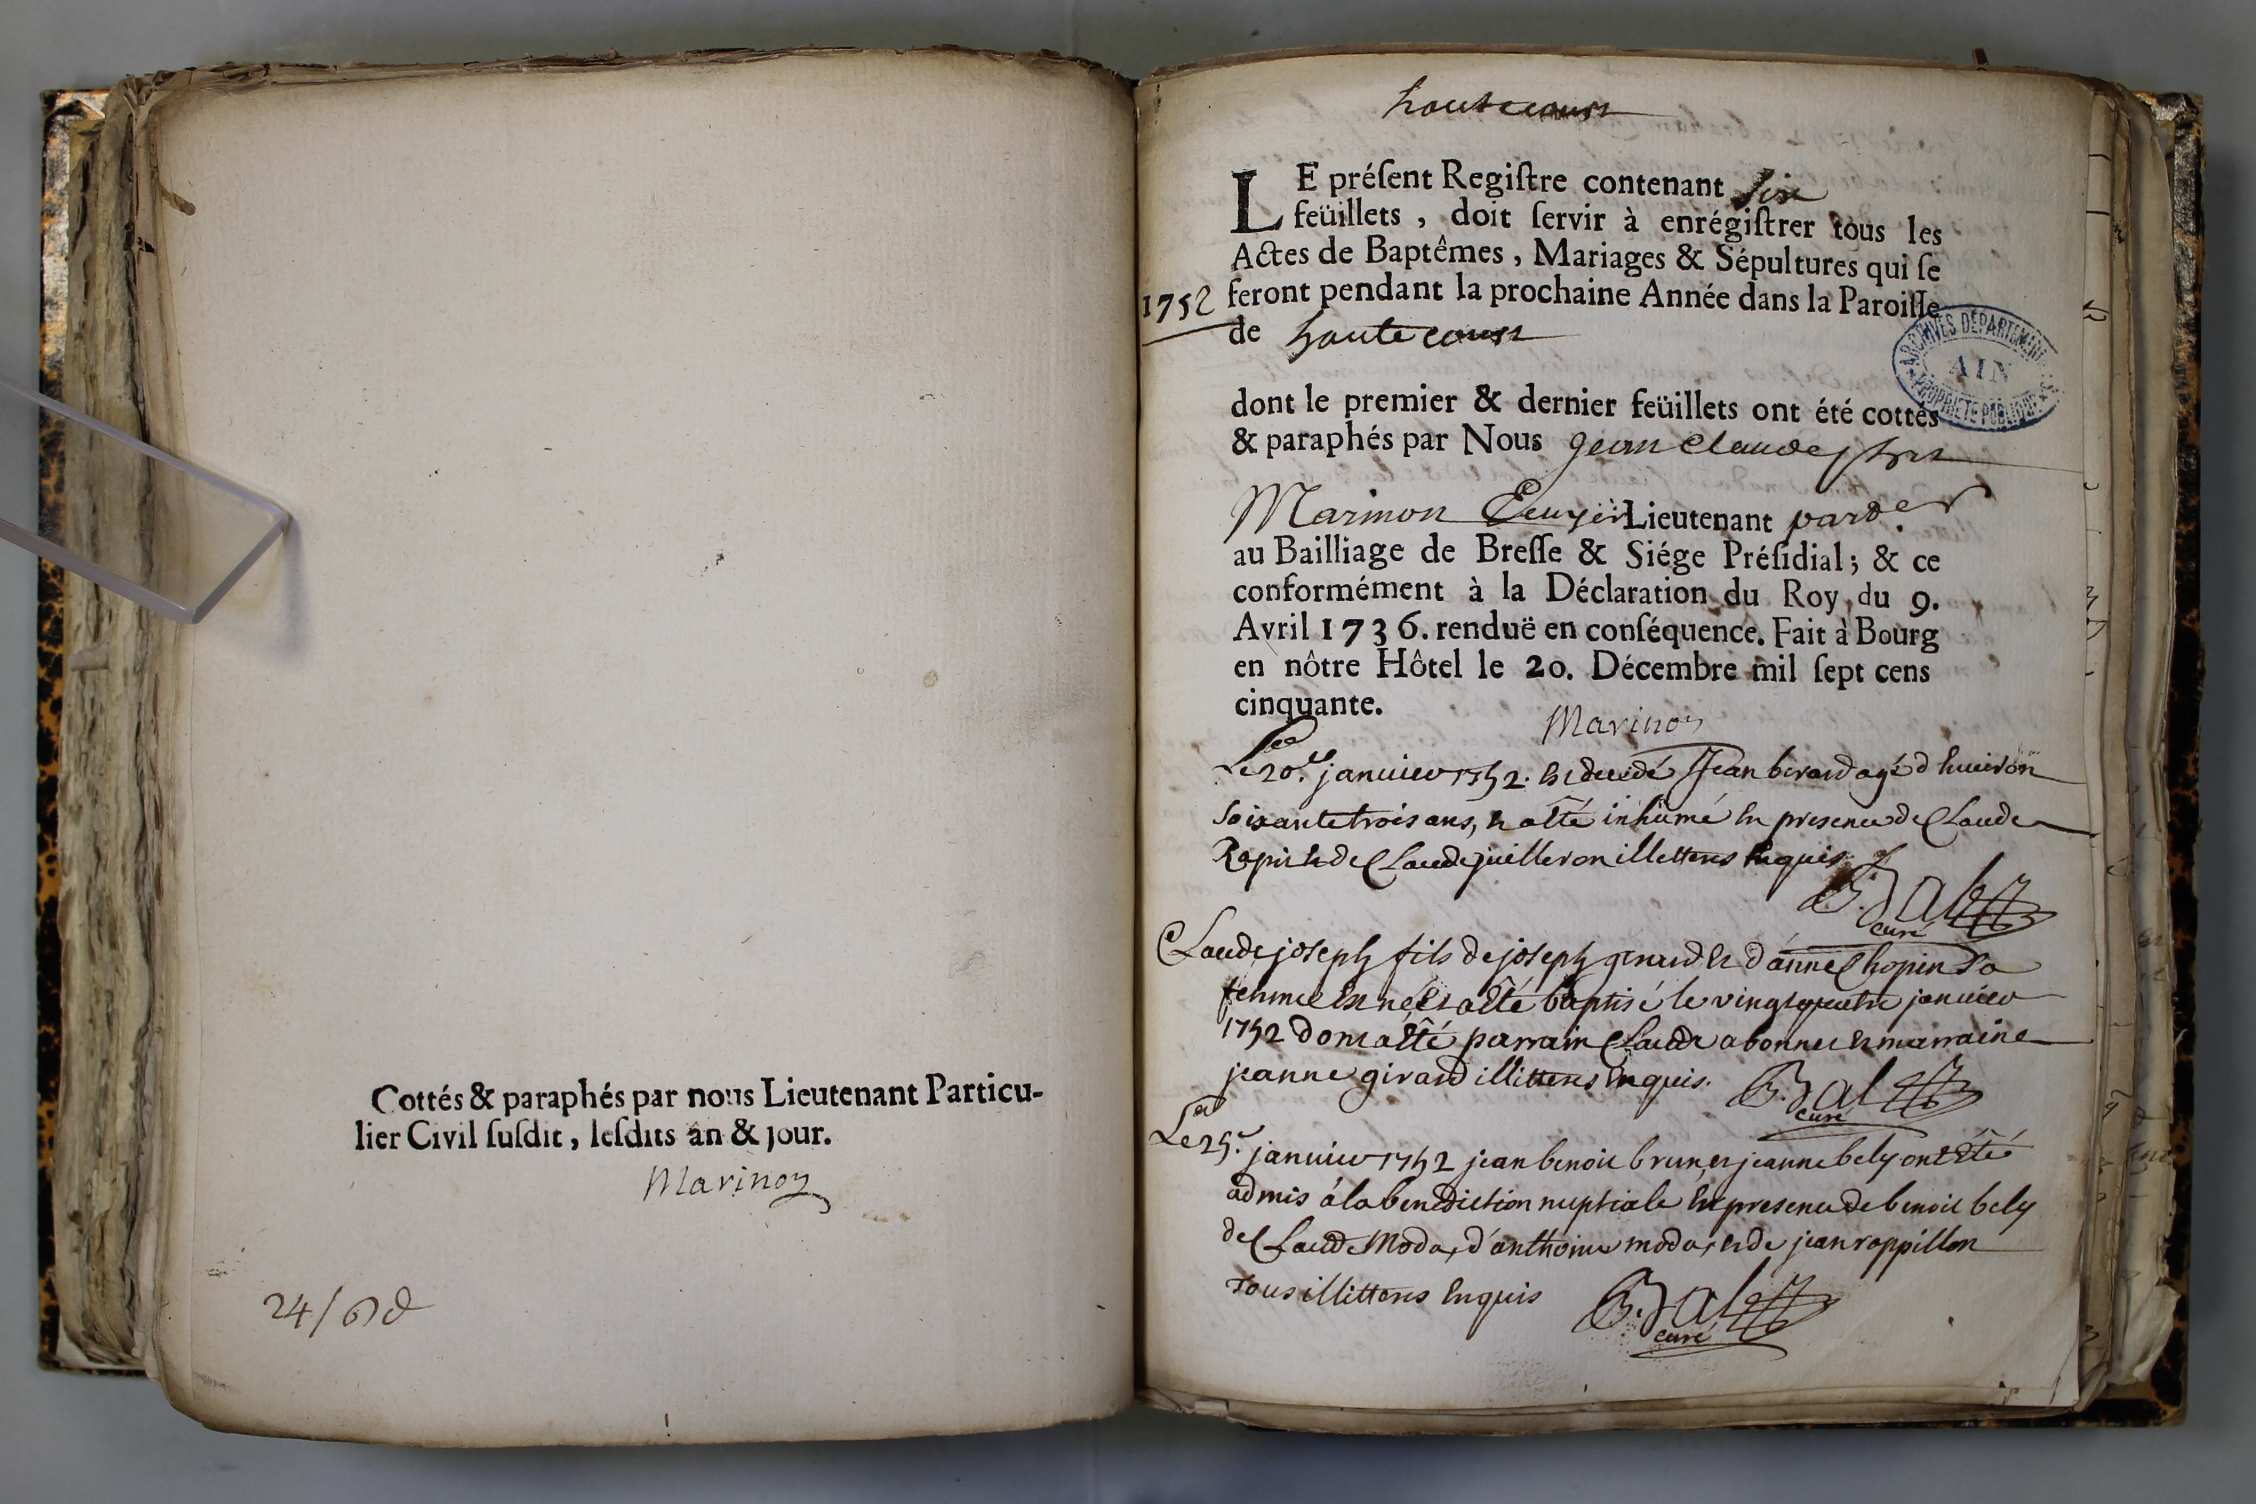 Cottés & paraphés par nous Lieutenant Particu-
lier Civil ſuſdit, leſdits an & jour.
Marinon
24/
hautecourt
LE préſent Regiſtre contenant six
feüillets, doit ſervir à enrégiſtrer tous les
Actes de Baptêmes, Mariages & Sépultures qui ſe
1752
feront pendant la prochaine Année dans la Paroiſſe
de hautecourt
ARCHIVES DÉPARTEMENTALES
AIN
PROPRIÉTÉ PUBLIQUE
dont le premier & dernier feüillets ont été cottés
& paraphés par Nous Jean Claude
Marinon Ecuyer Lieutenant parder
au Bailliage de Breſſe & Siége Préſidial; & ce
conformément à la Déclaration du Roy du 9.
Avril 1736. renduë en conſéquence. Fait à Bourg
en nôtre Hôtel le 20. Décembre mil ſept cens
cinquante.
Marinon
Le 20.e janvier 1752. est decedé Jean berard agé d'environ
soixante trois ans, et a êté inhumé en presence de Claude
Ropit et de Claude juilleron illetteres enquis
B. Jalet
curé
Claude joseph fils de joseph girard et d'anne Chopin sa
femme est né et a êté baptisé le vingt quatre janvier
1752 dont a êté parrain Claude abonnet et marraine
jeanne girard illitteres enquis.
B. Jalet
curé
Le 25.e janvier 1752 jean benoit brun et jeanne bely ont êté
admis à la benediction nuptiale en presence de benoit bely
de Claude Modas, d'anthoine modas, et de jean rappillon
tous illitteres enquis
B. Jalet
curé